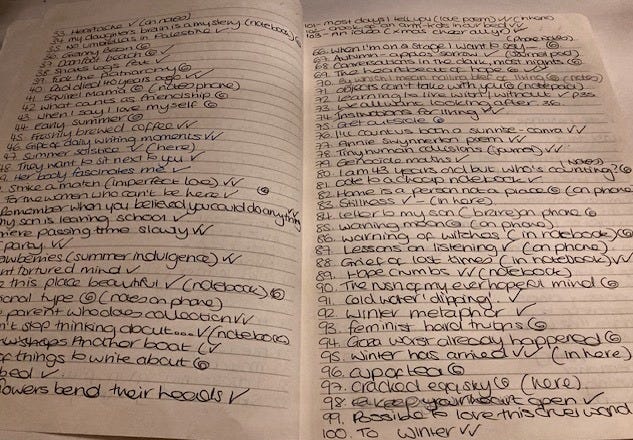 33. Heartache ✓ (on notes)
34. my daughters brain is a mystery (notebook)
35. No umbrellas in Palestine ✓
36. Granny Bean
37. Dan fast beach
38. Shoals legs
39. Fuck the patriarchy
40. Dad died 10 years ago ✓✓
41. Squirrel mama (notes phone)
42. What counts as friendship
43. When I say I love myself
44. Early Summer
45. Freshly brewed coffee ✓✓
46. Gift of daily writing moments ✓✓
47. Summer solstice ✓ (here)
48. They want to sit next to you ✓
Her body fascinates me ✓
Strike a match (imperfect love) ✓✓
For the women who can't be here ✓
Remember when you believed you could do anything
my son is leaving school ✓
time passing slowly ✓✓
party ✓✓
strawberries (summer indulgence) ✓✓
tortured mind ✓
this place beautiful ✓ (notebook)
onal type (notes on phone)
parent who does collection ✓✓
n't stop thinking about... ✓✓ (notebook)
Another boat
of things to write about
bed ✓
flowers bend their heads ✓
101 - most days I tell you (love poem) ✓✓ (in here)
102 - crack of an arm - trails in our bed ✓✓
103 - nn idea (xmas cheer ally)
(phone notes)
66. When I'm on a stage I want to say
67. Autumn - apples sorrow ✓ (journal pad)
68. Conversations in the dark, most nights
69. The heartbeat of hope ✓✓
70. By which I mean making bed or living (notes)
71. objects can't take with you (notepad)
72. Learning to live with/without ✓ p35
73. We all want looking after 36
74. Instructions for living ✓
75. Get a rescue
76. I'll count us both a sunrise - comma ✓✓
77. Annie Swynnerton poem ✓✓
78. Tiny human collisions (journal) ✓✓
79. Genocide maths ✓ (notes)
80. I am 43 years old but who's counting?
81. ode to a cheap notebook ✓
82. Home is a person not a place (on phone)
83. Stillness ✓ - (in here)
84. Letter to my son (brave) on phone
85. waning moon (on phone)
86. warning of witches (in notebook)
87. Lessons on listening ✓ (on phone)
88. Grief of last times (in notebook) ✓✓
89. Hope crumbs ✓✓ (notebook)
90. The nsn of my ever hopeful mind
91. Cold water 'dipping' ✓
92. Winter metaphor ✓
93. feminist hard truths
94. Gaza worst already happened
95. Winter has arrived ✓✓ (in here)
96. cup of tea
97. Cracked egg sky (here)
98. to keep your heart open ✓
99. Possible to love this cruel world
100. To Winter ✓✓